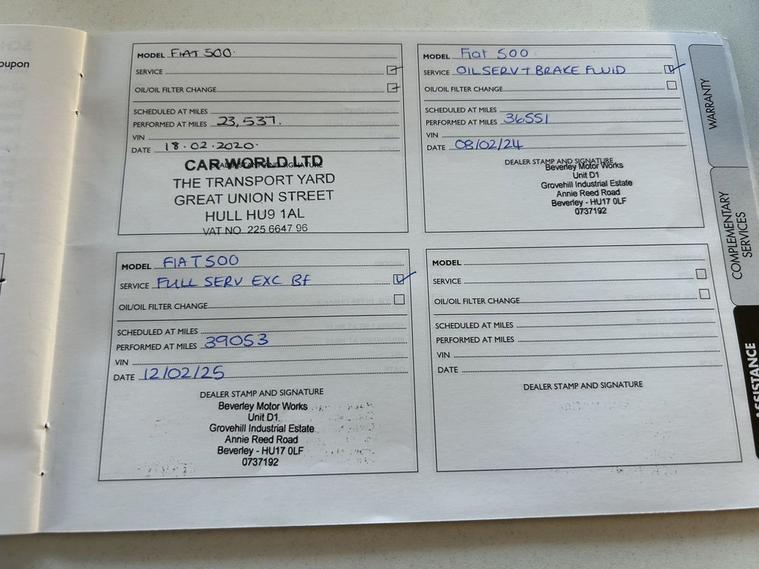 oupon
MODEL FIAT 500.
SERVICE
OIL/OIL FILTER CHANGE
SCHEDULED AT MILES
PERFORMED AT MILES 23,537.
VIN
DATE 18.02.2020.
CAR WORLD LTD
THE TRANSPORT YARD
GREAT UNION STREET
HULL HU9 1AL
VAT NO. 225 6647 96
MODEL Fiat 500
SERVICE OIL SERV + BRAKE FLUID
OIL/OIL FILTER CHANGE
SCHEDULED AT MILES
PERFORMED AT MILES 36551
VIN
DATE 08/02/24
DEALER STAMP AND SIGNATURE
Beverley Motor Works
Unit D1
Grovehill Industrial Estate
Annie Reed Road
Beverley - HU17 0LF
0737192
MODEL FIAT 500
SERVICE FULL SERV EXC Bf
OIL/OIL FILTER CHANGE
SCHEDULED AT MILES
PERFORMED AT MILES 39053
VIN
DATE 12/02/25
DEALER STAMP AND SIGNATURE
Beverley Motor Works
Unit D1
Grovehill Industrial Estate
Annie Reed Road
Beverley - HU17 0LF
0737192
MODEL
SERVICE
OIL/OIL FILTER CHANGE
SCHEDULED AT MILES
PERFORMED AT MILES
VIN
DATE
DEALER STAMP AND SIGNATURE
WARRANTY
COMPLEMENTARY
SERVICES
ASSISTANCE